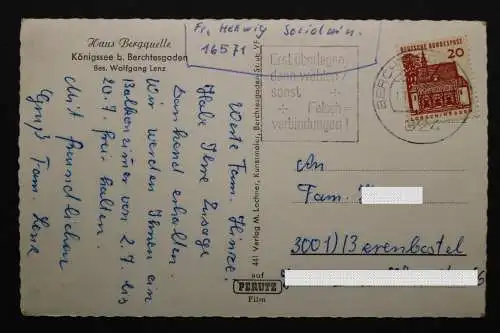 Haus Bergquelle
Königssee b. Berchtesgaden
Bes. Wolfgang Lenz
Werte Fam. Hinze.
Habe Ihre Zusage
dankend erhalten.
Wir werden Ihnen ein
Balkonzimmer vom 2.7. bis
20.7. frei halten.
Mit freundlichem
Gruß Fam. Lenz
Fr. Hellwig
16571
Erst überlegen,
dann wählen!
sonst
Falsch-
verbindungen!
BERCH
DEUTSCHE BUNDESPOST
20
411 Verlag M. Lochner, Kunstmaler, Berchtesgaden
auf
PERUTZ
Film
An
Fam.
3001) Berenbostel